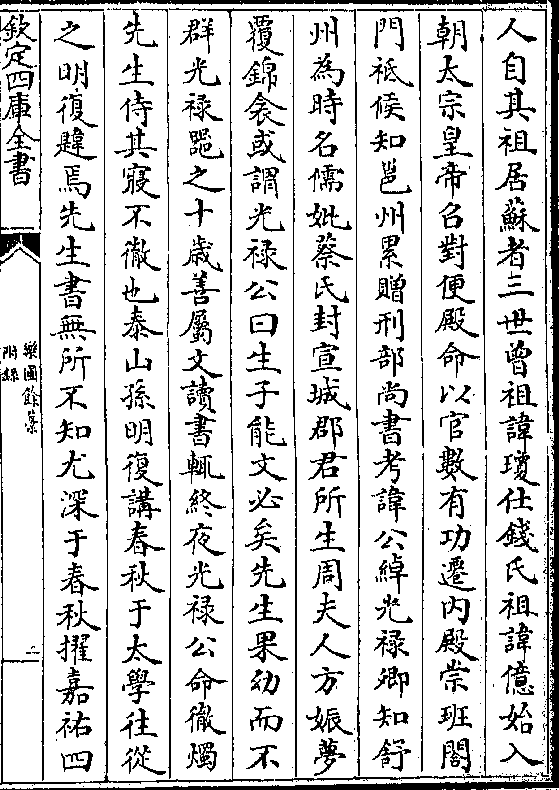 人自其祖居蘇者三世曾祖諱瓊仕錢氏祖諱億始入
朝太宗皇帝召對便殿命以官數有功遷内殿崇班閤
門祗候知邕州累贈刑部尚書考諱公綽光禄卿知舒
州為時名儒妣蔡氏封宣城郡君所生周夫人方娠夢
覆錦衾或謂光禄公曰生子能文必矣先生果幼而不
群光禄器之十歳善屬文讀書輒終夜光禄公命徹燭
先生侍其寢不徹也泰山孫明復講春秋于太學往從
之明復韙焉先生書無所不知尤深于春秋擢嘉祐四
欽定四庫全書
樂圃餘藁
附録
二